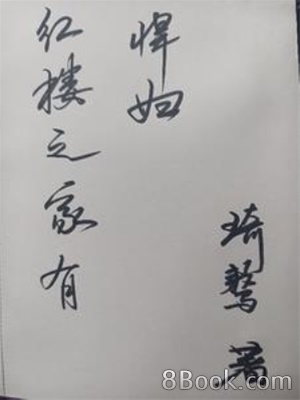 红楼之家有
悍妇
琦著
8Book.com